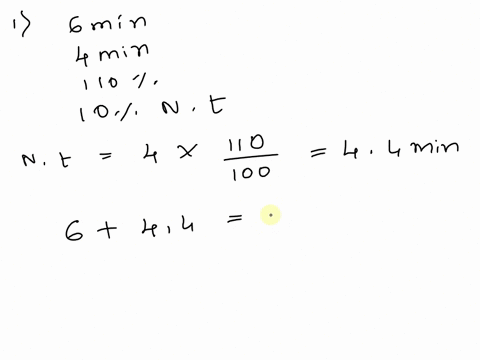 1) 6 min
4 min
110 %.
10 % N.t
N.t = 4 × 110/100 = 4.4 min
6 + 4.4 =